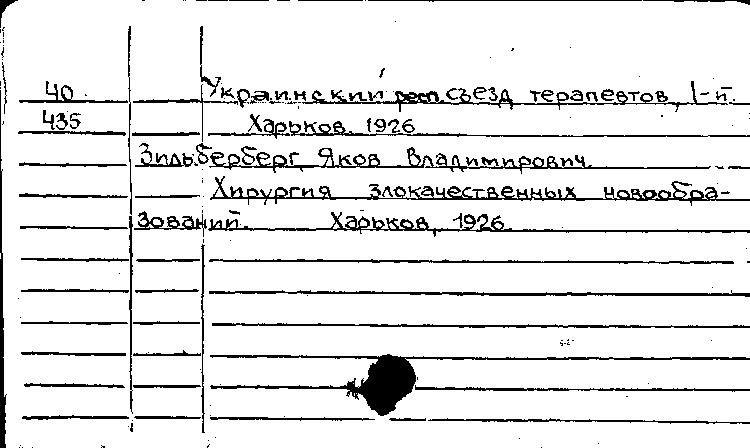 40 Украинский респ. съезд терапевтов, I-й.
435 Харьков. 1926
Зильберберг, Яков Владимирович.
Хирургия злокачественных новообра-
зований. Харьков, 1926.